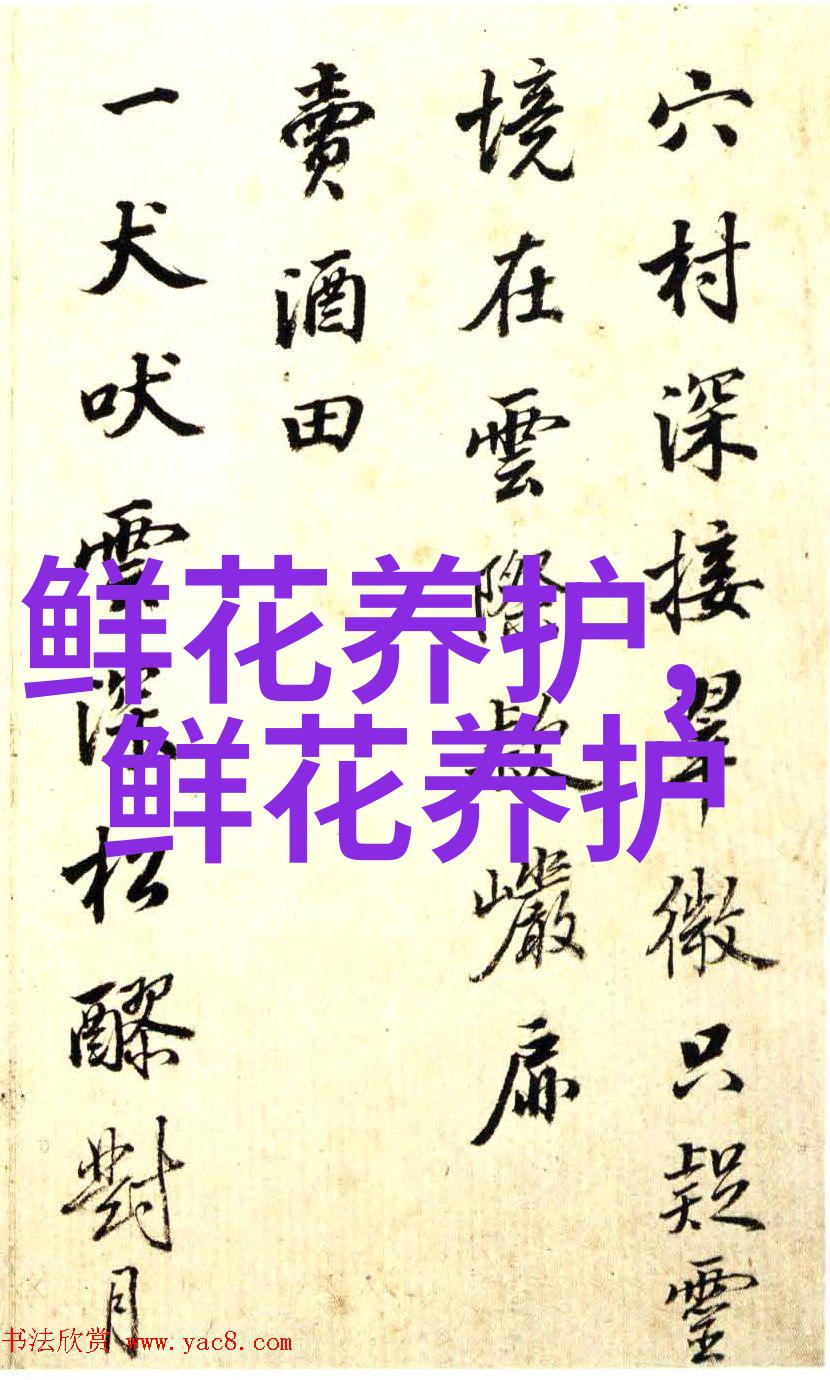 穴村深接翠微只疑靈
境在雲際敲巖扉
賣酒田
一犬吠雲深松醪對月
鲜花养护,
鲜花养护
书法欣赏 www.yac8.com